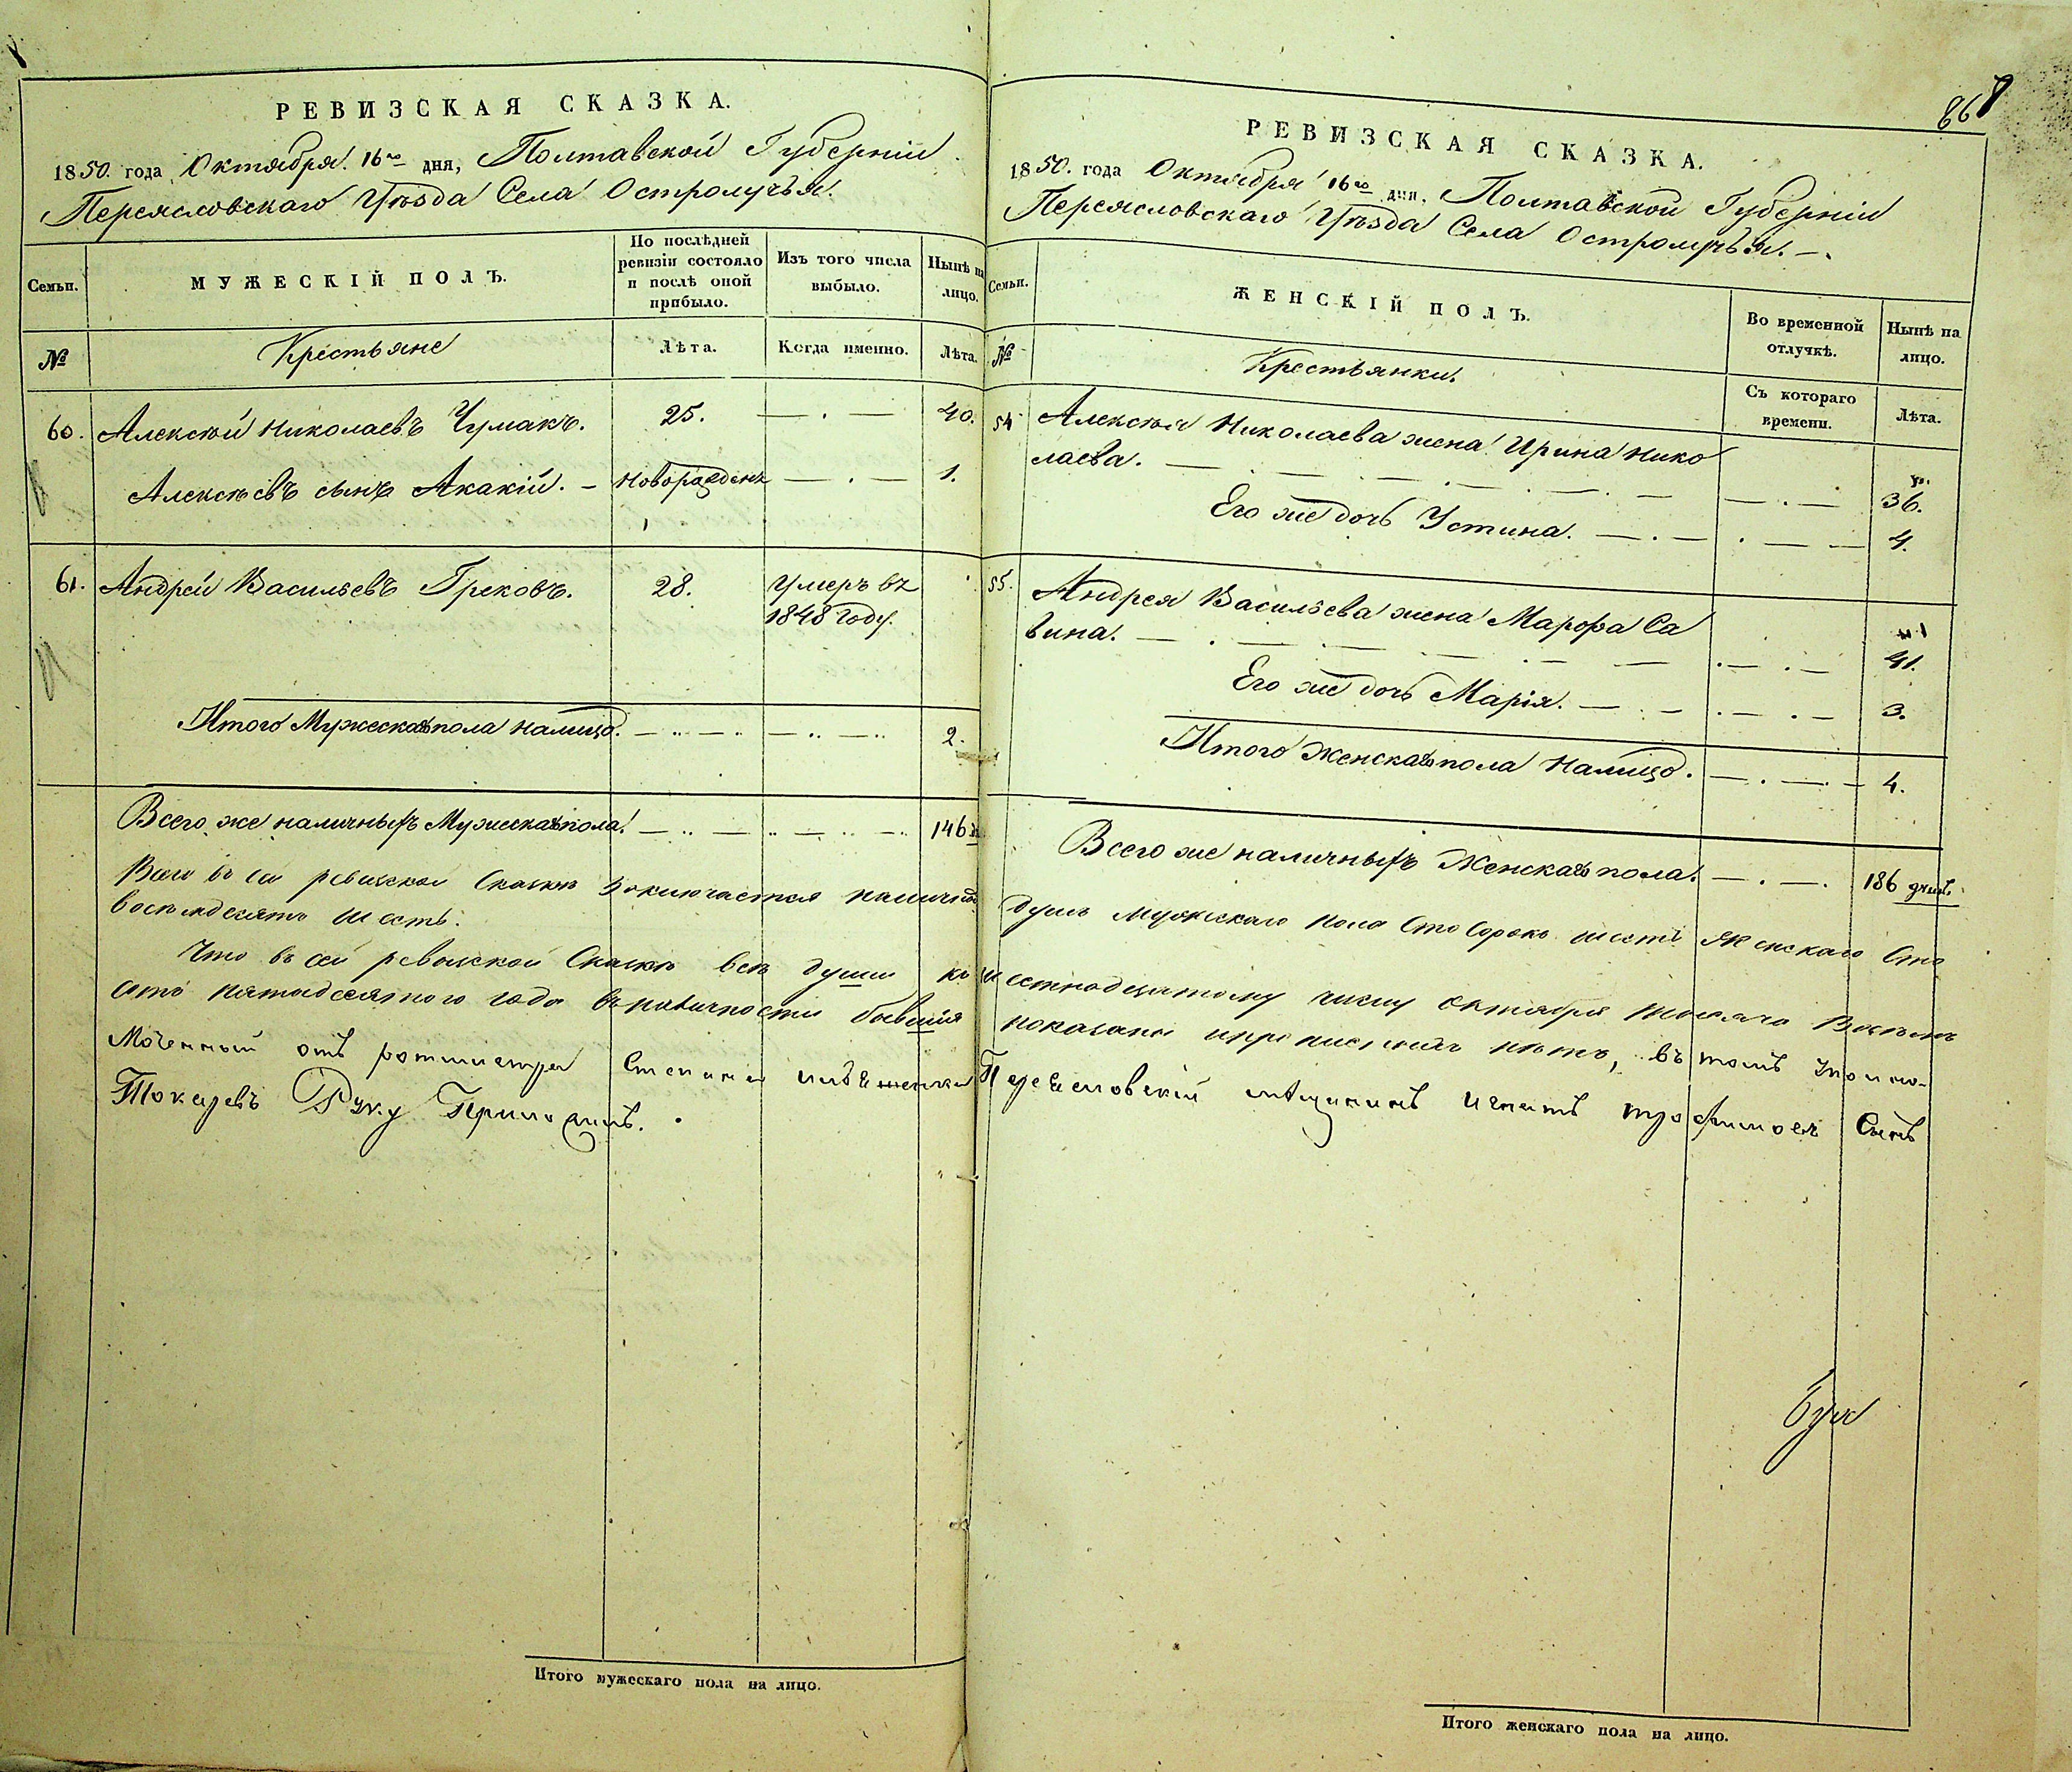 РЕВИЗСКАЯ СКАЗКА.
1850. года Октября 16го дня, Полтавской Губерніи
Переясловскаго Уѣзда Села Остролучья.
Семьи.
МУЖЕСКІЙ ПОЛЪ.
По послѣдней ревизіи состояло и послѣ оной прибыло.
Изъ того числа выбыло.
Нынѣ на лицо.
№
Крестьяне
Лѣта.
Когда именно.
Лѣта.
60. Алексѣй Николаевъ Чумакъ. 25. — . — 40.
Алексѣевъ сынъ Акакій. — новорожденъ — . — 1.
61. Андрей Васильевъ Грековъ. 28. Умеръ въ
1848 году.
Итого Мужеска пола налицо. — .. — .. — .. — .. 2.
Всего же наличныхъ Мужеска пола. — .. — .. — .. — .. 146
Всего въ сей ревизской Сказкѣ заключается налич
восемдесятъ шесть.
Что въ сей ревизской Сказкѣ всѣ души къ ш
сотъ пятидесятого года въ наличности бывшія
Моченный отъ ротмистра Степана
Токаревъ Руку Приложилъ.
Итого мужескаго пола на лицо.
867
РЕВИЗСКАЯ СКАЗКА.
1850. года Октября 16го дня, Полтавской Губерніи
Переясловскаго Уѣзда Села Остролучья. —.
Семьи.
ЖЕНСКІЙ ПОЛЪ.
Во временной отлучкѣ.
Нынѣ на лицо.
№
Крестьянки.
Съ котораго времени.
Лѣта.
54 Алексѣя Николаева жена Ирина Нико
лаева. — . — . — . — . — — . — 36.
Его же дочь Устина. — . — . — — 4.
55. Андрея Васильева жена Марфа Са
вина. — . — . — . — — . — . — 41.
Его же дочь Марія. — . — . — . — 3.
Итого Женска пола Налицо. — . — . — 4.
Всего же наличныхъ Женска пола. — . — . 186 душъ.
душъ мужескаго пола Сто Сорокъ шесть Женскаго Сто
естнадцатому числу октября тысяча Восемь
показаны и прописныхъ нѣтъ, въ томъ Уполно-
Переясловскій мѣщанинъ Игнатъ трофимовъ Сынъ
Итого женскаго пола на лицо.